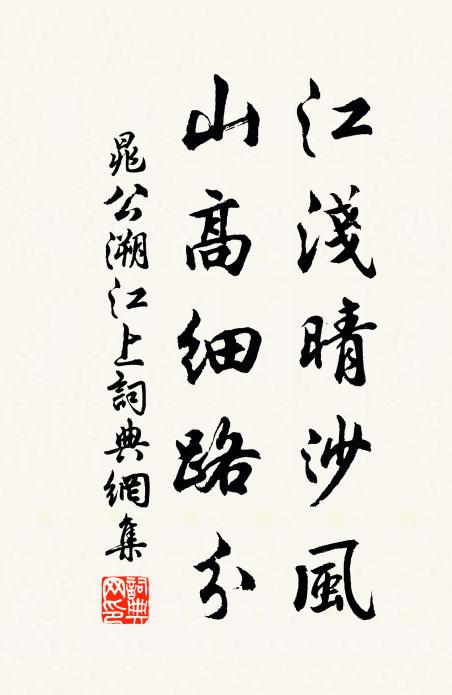 江淺晴沙風
山高細路分
晁公溯江上詞典網集
詞典網印